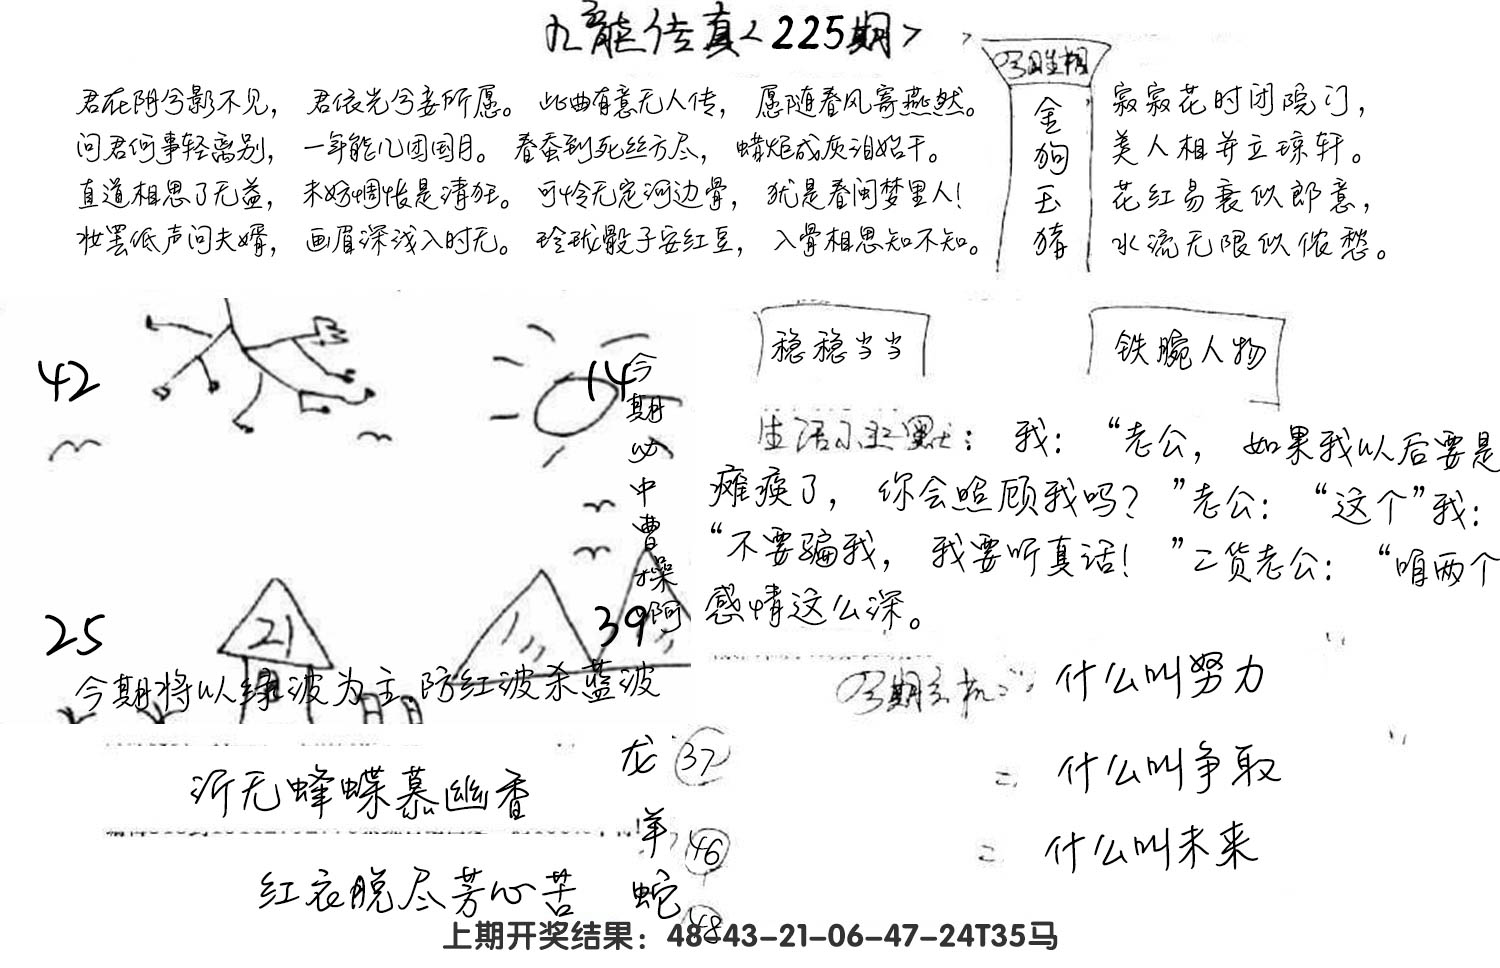 九龙传真<225期>
今期生相
金狗玉猪
君在阴兮影不见，君依光兮妾所愿。此曲有意无人传，愿随春风寄燕然。
问君何事轻离别，一年能几团圆月。春蚕到死丝方尽，蜡炬成灰泪始干。
直道相思了无益，未妨惆怅是清狂。可怜无定河边骨，犹是春闺梦里人！
妆罢低声问夫婿，画眉深浅入时无。玲珑骰子安红豆，入骨相思知不知。
寂寂花时闭院门，
美人相并立琼轩。
花红易衰似郎意，
水流无限似侬愁。
42
14
今期必中曹操啊
25
21
39
今期将以绿波为主.防红波杀蓝波
稳稳当当
铁腕人物
我：“老公，如果我以后要是
瘫痪了，你会照顾我吗？”老公：“这个”我：
“不要骗我，我要听真话！”二货老公：“咱两个
感情这么深。
什么叫努力
二 什么叫争取
二 什么叫未来
沂无蜂蝶慕幽香
红衣脱尽芳心苦
龙 37
羊 46
蛇 48
上期开奖结果：48-43-21-06-47-24T35马